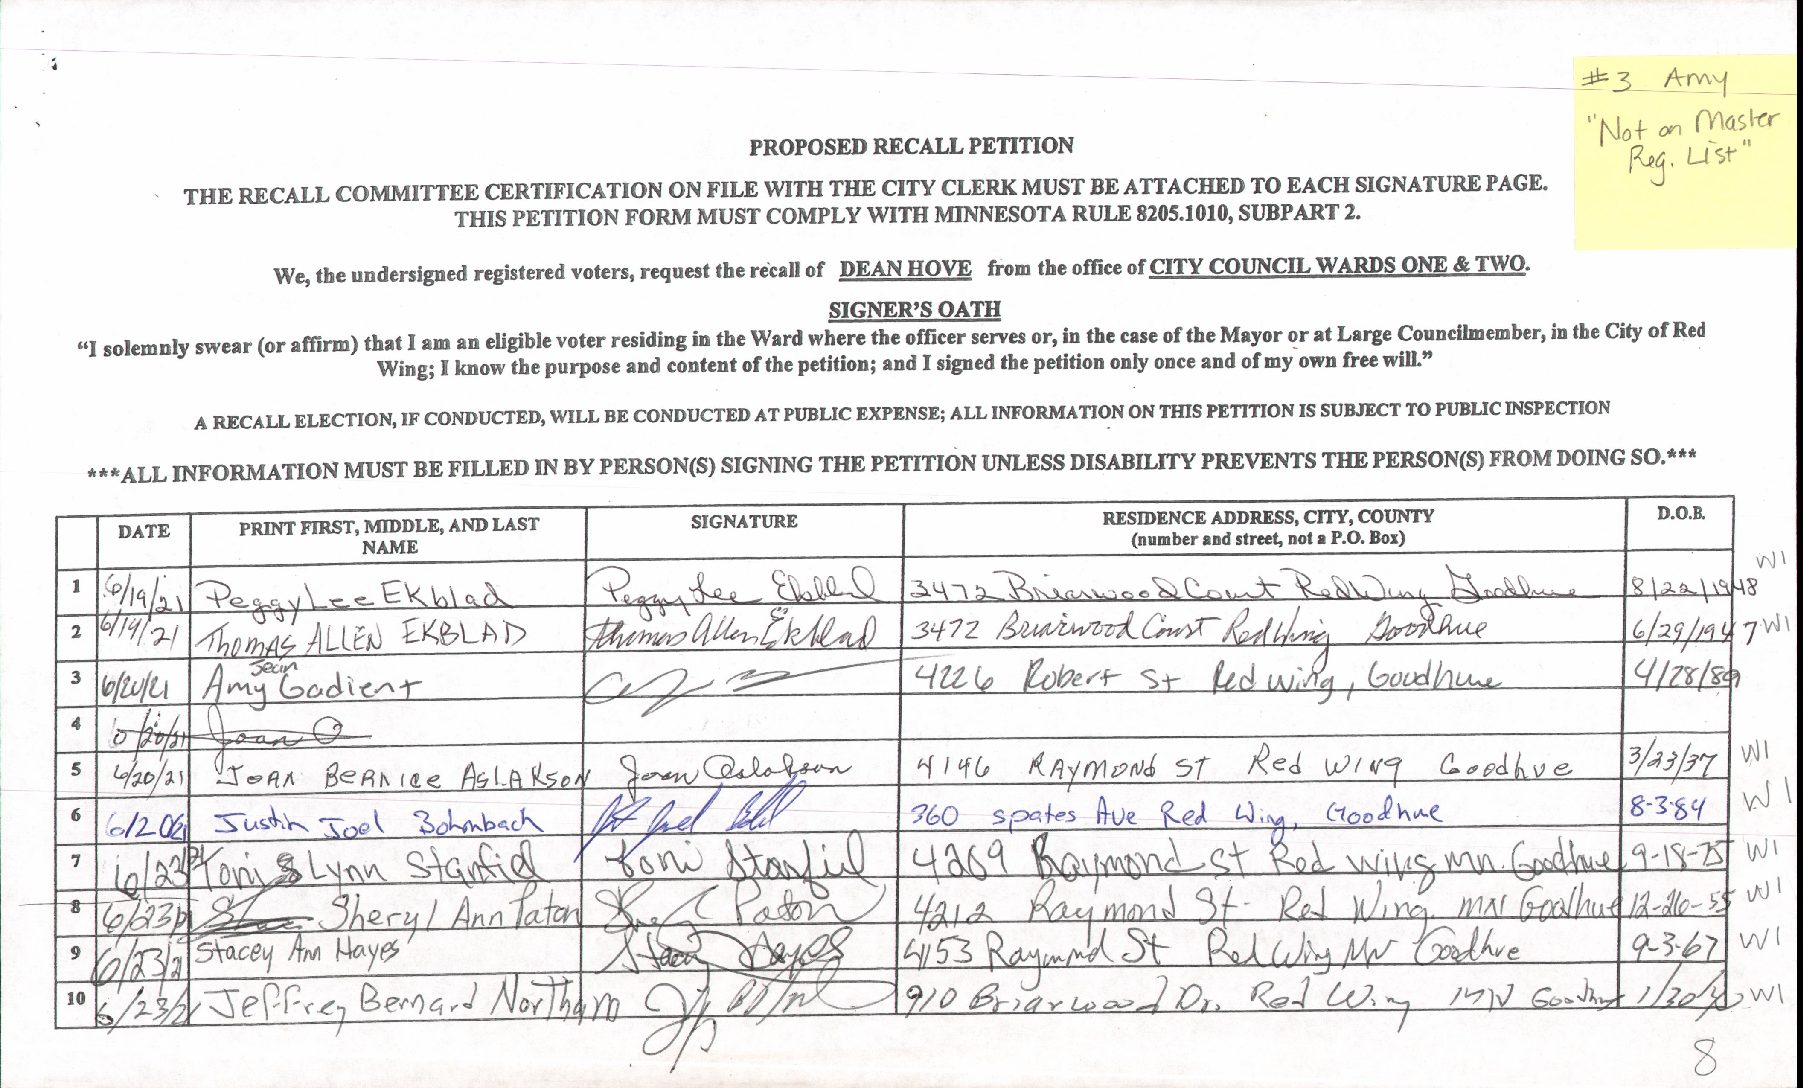 #3 Amy
"Not on Master
Reg. List"
PROPOSED RECALL PETITION
THE RECALL COMMITTEE CERTIFICATION ON FILE WITH THE CITY CLERK MUST BE ATTACHED TO EACH SIGNATURE PAGE.
THIS PETITION FORM MUST COMPLY WITH MINNESOTA RULE 8205.1010, SUBPART 2.
We, the undersigned registered voters, request the recall of DEAN HOVE from the office of CITY COUNCIL WARDS ONE & TWO.
SIGNER'S OATH
"I solemnly swear (or affirm) that I am an eligible voter residing in the Ward where the officer serves or, in the case of the Mayor or at Large Councilmember, in the City of Red
Wing; I know the purpose and content of the petition; and I signed the petition only once and of my own free will."
A RECALL ELECTION, IF CONDUCTED, WILL BE CONDUCTED AT PUBLIC EXPENSE; ALL INFORMATION ON THIS PETITION IS SUBJECT TO PUBLIC INSPECTION
***ALL INFORMATION MUST BE FILLED IN BY PERSON(S) SIGNING THE PETITION UNLESS DISABILITY PREVENTS THE PERSON(S) FROM DOING SO.***
DATE PRINT FIRST, MIDDLE, AND LAST NAME SIGNATURE RESIDENCE ADDRESS, CITY, COUNTY (number and street, not a P.O. Box) D.O.B.
1 6/19/21 Peggy Lee EKblad Peggy Lee Ekblad 3472 Briarwood Court Red Wing Goodhue 8/22/1948 W1
2 6/19/21 Thomas ALLEN EKBLAD Thomas Allen Ekblad 3472 Briarwood Court Red Wing Goodhue 6/29/1947 W1
3 6/20/21 Amy Jean Gadient 4226 Robert St Red Wing, Goodhue 4/28/89
4 6/20/21 Joan
5 6/20/21 Joan Bernice Aslakson Joan Aslakson 4146 Raymond St Red Wing Goodhue 3/23/37 W1
6 Justin Joel Bohmbach 360 spates Ave Red Wing, Goodhue 8-3-84 W1
7 Toni Lynn Stanfield Toni Stanfiel 4269 Raymond St Red Wing mn Goodhue 9-18-75 W1
8 Sheryl Ann Paton Paton 4212 Raymond St. Red Wing mn Goodhue 12-26-55 W1
9 6/23/21 Stacey Ann Hayes Stacey Hayes 4153 Raymond St Red Wing MN Goodhue 9-3-67 W1
10 6/23/21 Jeffrey Bernard Northam 910 Briarwood Dr. Red Wing MN Goodhue W1
8